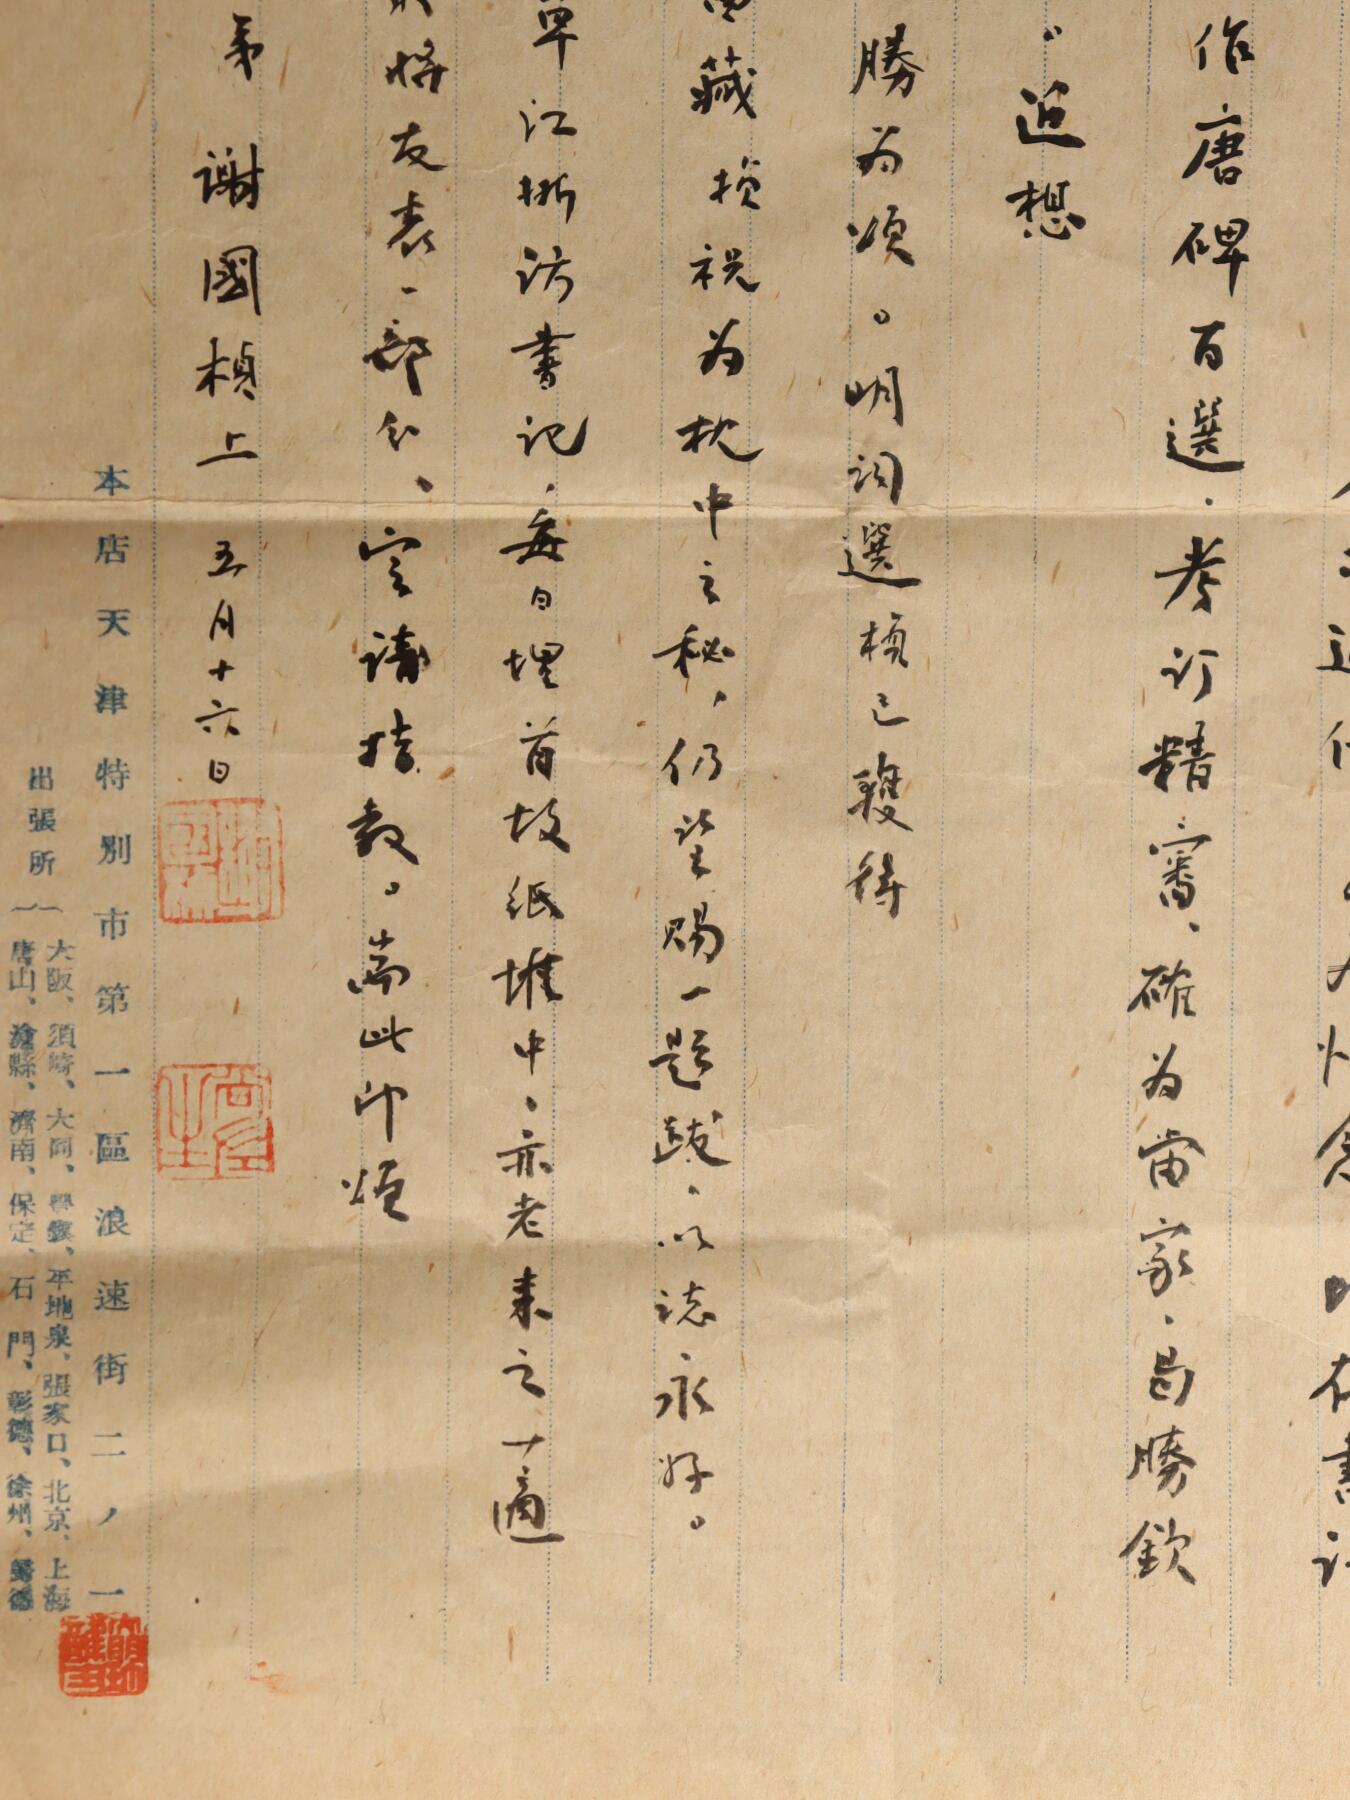 作唐碑百選、考訂精審、確為當家、曷勝欽
近想
勝為頌。明詞選楨已獲得
藏楨祝為枕中之秘，仍望賜一題跋、以誌永好。
草江浙訪書記，每日埋首故紙堆中，亦老來之一適
將友表一部分、寄請指教。耑此即頌
弟 謝國楨上 五月十六日
本店天津特別市第一區浪速街二ノ一
出張所
大阪、須崎、大同、豐鎮、平地泉、張家口、北京、上海
唐山、滄縣、濟南、保定、石門、彰德、徐州、歸德